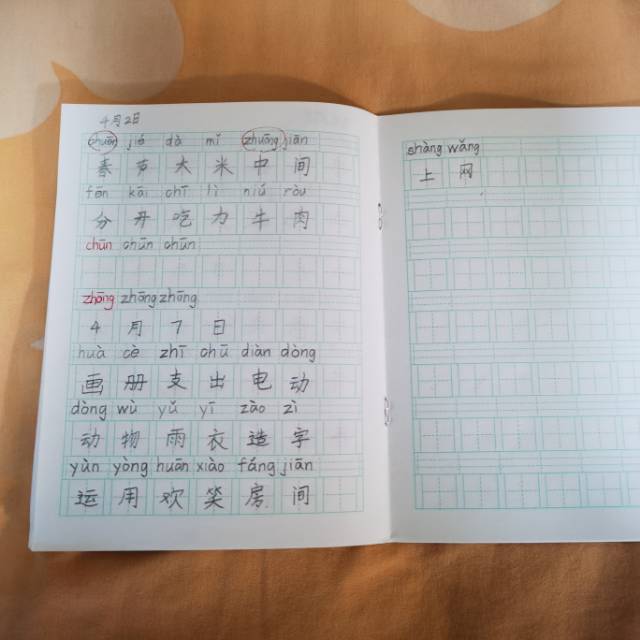 4月2日
chuān jié dà mǐ zhuōng jiān
春 节 大 米 中 间
fēn kāi chī lì niú ròu
分 开 吃 力 牛 肉
chūn chūn chūn
zhōng zhōng zhōng
4 月 7 日
huà cè zhī chū diàn dòng
画 册 支 出 电 动
dòng wù yǔ yī zào zì
动 物 雨 衣 造 字
yùn yòng huān xiào fáng jiān
运 用 欢 笑 房 间
shàng wǎng
上 网